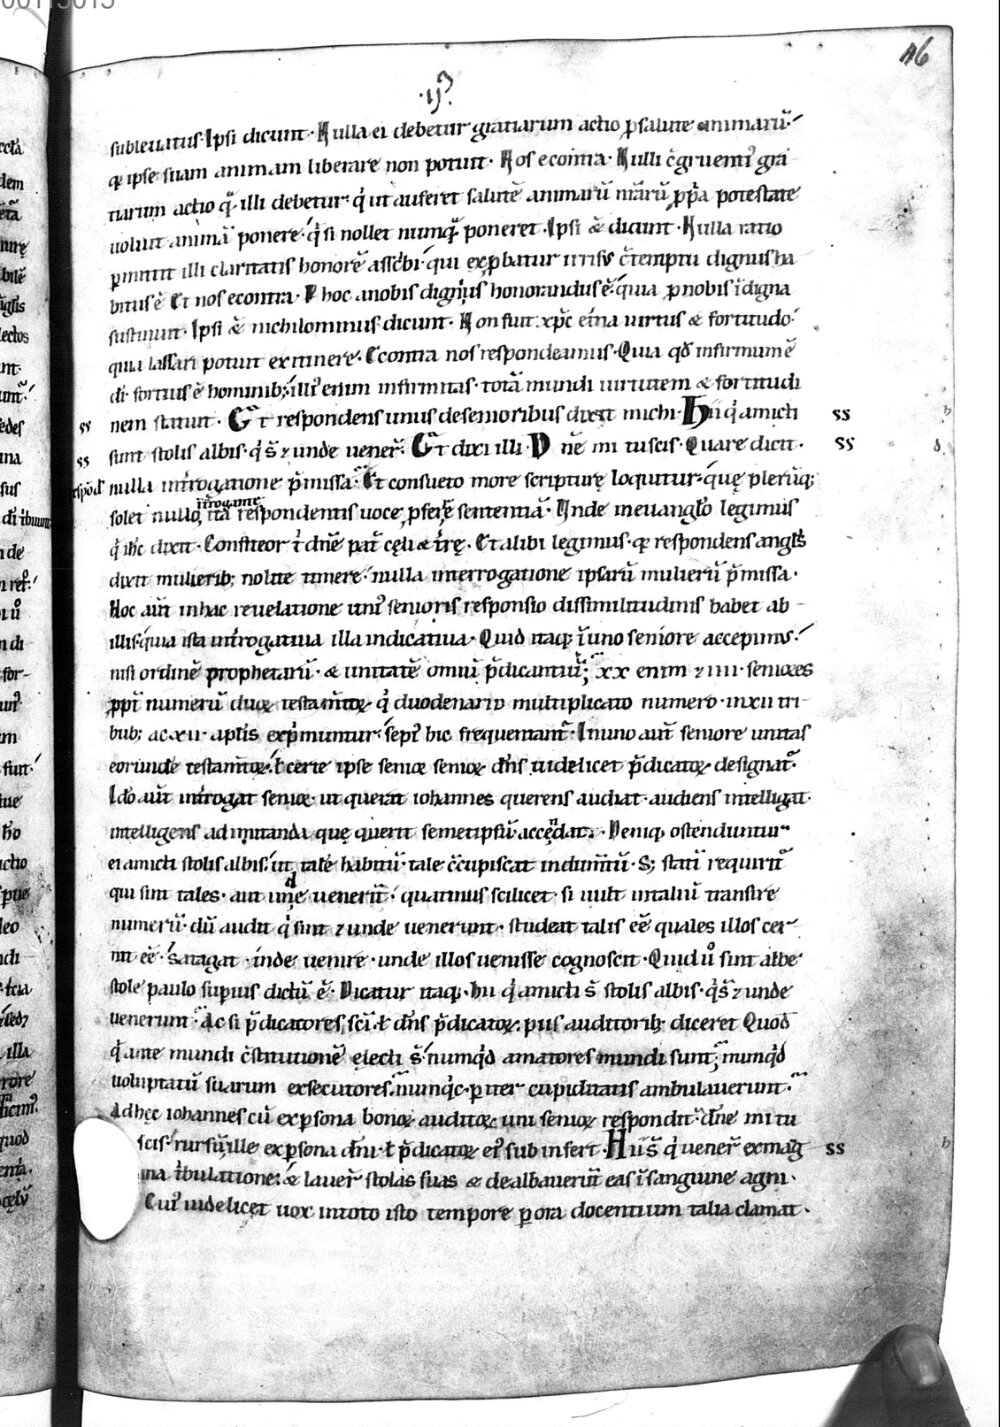 00115015
116
subleuatus. Ipsi dicunt. Nulla ei debetur gratiarum actio p salute animarū.
q̄ ipse suam animam liberare non potuit. Nos econtra. Nulli c̄gruentiꝰ gra
tiarum actio q̄ illi debetur. qͥ ut auferet salutē animarū nr̄arū ꝓpͥa potestate
uoluit animā ponere. qͥ si nollet numq̄ poneret. Ipsi & dicunt. Nulla ratio
ꝑmittit illi claritatis honorē ascͥbi. qui exꝓbatur irrisꝰ c̄temptu dignus ha
bitus ē. Et nos econtra. P hoc a nobis dignius honorandus ē. quia ꝓ nobis īdigna
sustinuit. Ipsi & nichilominus dicunt. Non fuit xp̄c et̄na uirtus & fortitudo.
quia lassari potuit ex itinere. Econtra nos respondeamus. Quia qd̄ infirmum ē
dī. fortius ē hominib; illiꝰ enim infirmitas. totā mundi uirtutem & fortitudi
nem statuit. Et respondens unus de senioribus dixit michi. Hii qͥ amicti
sunt stolis albis. qͥ s̄ ⁊ unde uener̄. Et dixi illi. Dn̄e mi tu scis. Quare dicit.
nulla int̄rogatione p̄missa. Et consueto more scripturę loquitur. quę plerūq;
solet nullo int̄rogante ita respondentis uoce ꝓferre sententiā. Unde in euangl̄o legimus
qͥ ih̄c dixit. Confiteor t̄ dn̄e pat̄ cęli & t̄rę. Et alibi legimus. q̄ respondens angl̄s
dixit mulierib; nolite timere. nulla interrogatione ipsarū mulierū p̄missa.
Hoc aūt in hac reuelatione uniꝰ senioris responsio dissimilitudinis habet ab
illis. quia ista int̄rogatiua illa indicatiua. Quid itaq; ī uno seniore accepimꝰ.
nisi ordinē prophetarū. & unitatē omniū p̄dicantiū; xx enim ⁊ iiii seniores
ꝓpt̄ numerū duoꝝ testam̄toꝝ. qͥ duodenario multiplicato numero. in xii tri
bub; ac xii. aptīs expͥmuntur. sepiꝰ hic frequentant̄. In uno aūt seniore unitas
eorunde testam̄toꝝ. ł certe ipse senioꝝ senioꝝ. dn̄s uidelicet p̄dicatoꝝ. designat̄.
Ido aūt int̄rogat senioꝝ. ut querat iohannes querens audiat. audiens intelligat.
intelligens ad imitanda quę querit semetipsū accendat. Deniq; ostenduntur
ei amicti stolis albis. ut talē habitū. tale c̄cupiscat indum̄tū. S; statī requirit̄
qui sint tales. aut unde uenerīt. quatinus scilicet si uult in taliū transire
numerū. dū audit qͥ sint ⁊ unde uenerunt. studeat talis eē quales illos cer
nit eē. satagat inde uenire. unde illos uenisse cognoscit. Quid ū sint albe
stole paulo supius dictū ē. Dicatur itaq;. hii qͥ amicti s̄ stolis albis. qͥ s̄ ⁊ unde
uenerunt. Ac si p̄dicatores sc̄i. ł dn̄s p̄dicatoꝝ. piis auditorib; diceret Quod
qͥ ante mundi c̄stitutionē electi s̄. numqd̄ amatores mundi sunt; nunqd̄
uoluptatū suarum exsecutores. nunqͥc ꝑ iter cupiditatis ambulauerunt.
Ad hęc iohannes cū ex ꝑsona bonoꝝ auditoꝝ. uni senioꝝ respondit. dn̄e mi tu
scis. rursū ille ex ꝑsona dn̄i. ł p̄dicatoꝝ eiꝰ subinfert. Hii s̄ qͥ uener̄ ex mag
na t̄bulatione. & lauer̄ stolas suas & dealbauerūt eas ī sanguine agni.
Cuiꝰ uidelicet uox in toto isto tempore ꝑ ora docentium talia clamat.